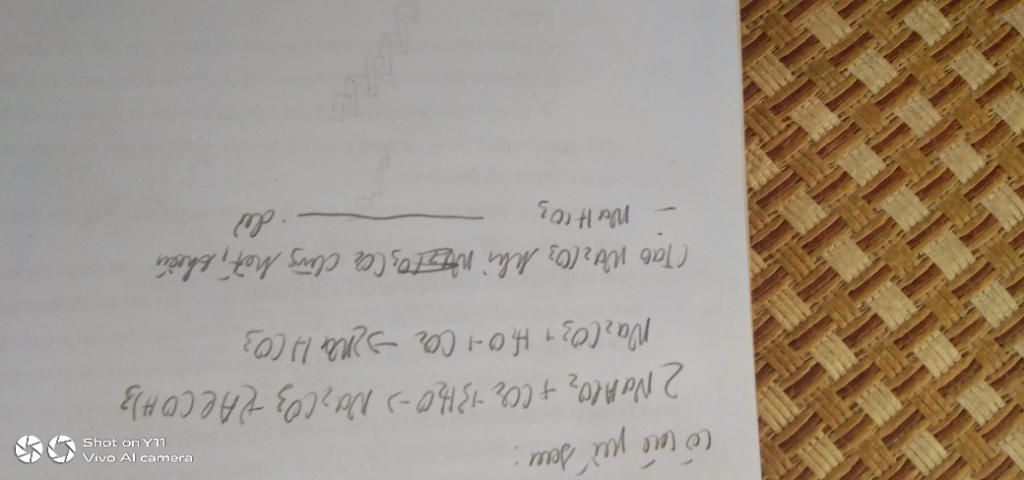 Có các pứ sau:
2 NaAlO2 + CO2 + 3H2O -> Na2CO3 + 2Al(OH)3
Na2CO3 + H2O + CO2 -> 2NaHCO3
(Tạo Na2CO3 khi CO2 cũng hết, thiếu
- NaHCO3 ———— dư.
Shot on Y11
Vivo AI camera